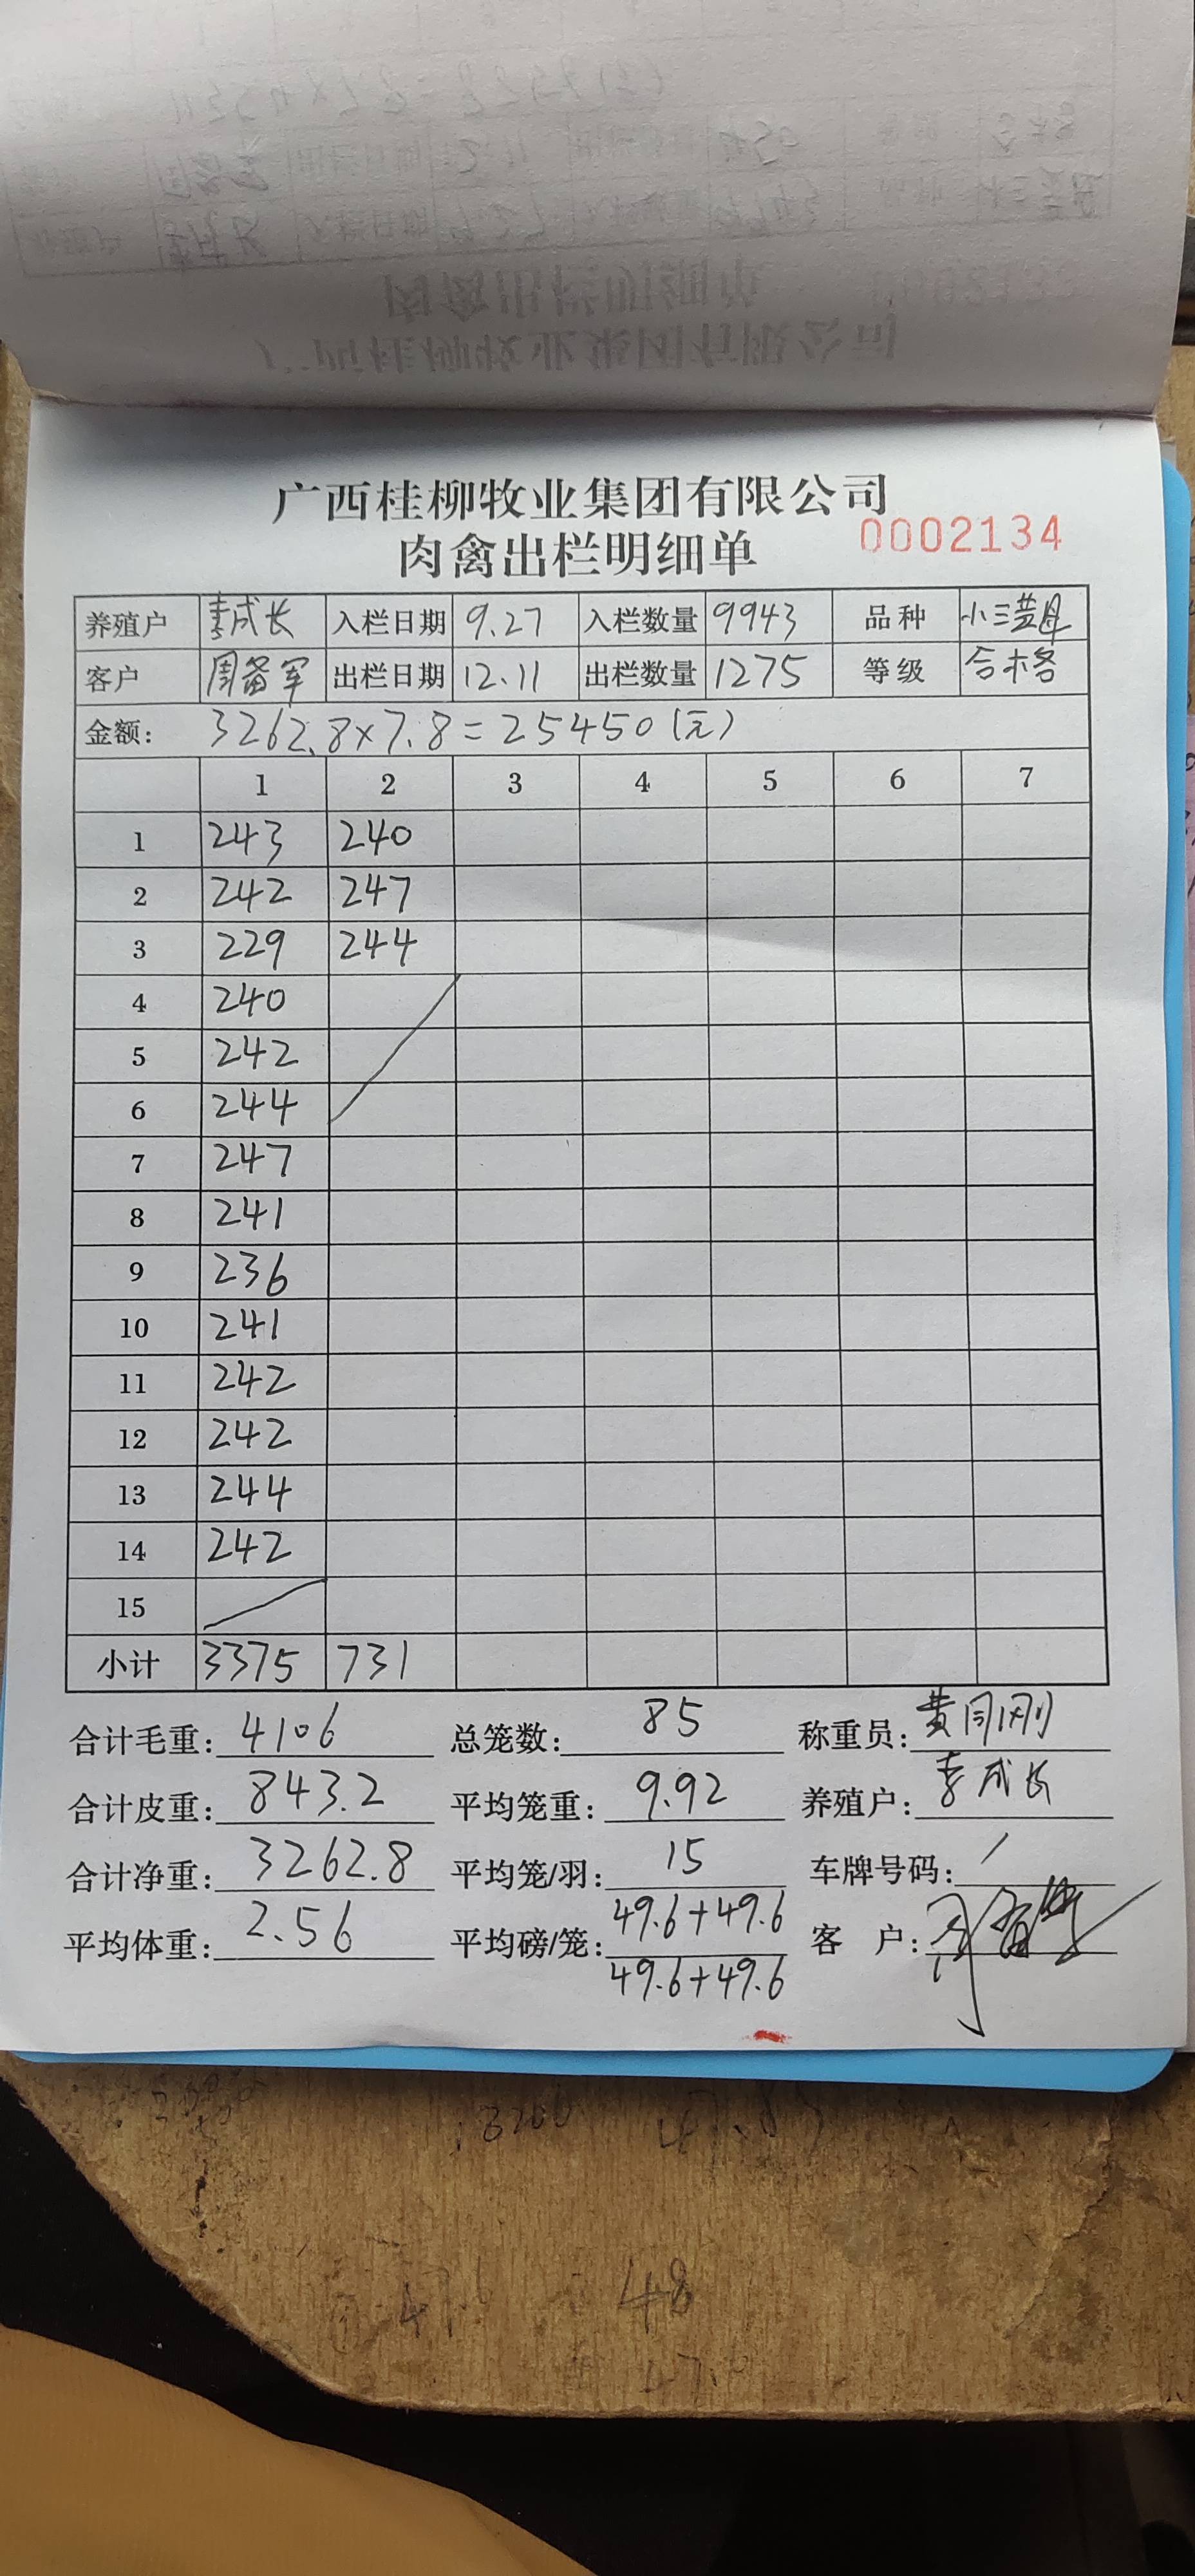 广西桂柳牧业集团有限公司
肉禽出栏明细单 0002134
养殖户 李成长 入栏日期 9.27 入栏数量 9943 品种
客户 周备军 出栏日期 12.11 出栏数量 1275 等级 合格
金额: 3262.8×7.8=25450(元)
1 2 3 4 5 6 7
1 243 240
2 242 247
3 229 244
4 240
5 242
6 244
7 247
8 241
9 236
10 241
11 242
12 242
13 244
14 242
15
小计 3375 731
合计毛重: 4106 总笼数: 85 称重员: 黄同刚
合计皮重: 843.2 平均笼重: 9.92 养殖户: 李成长
合计净重: 3262.8 平均笼/羽: 15 车牌号码: /
平均体重: 2.56 平均磅/笼: 49.6+49.6 客 户:
49.6+49.6